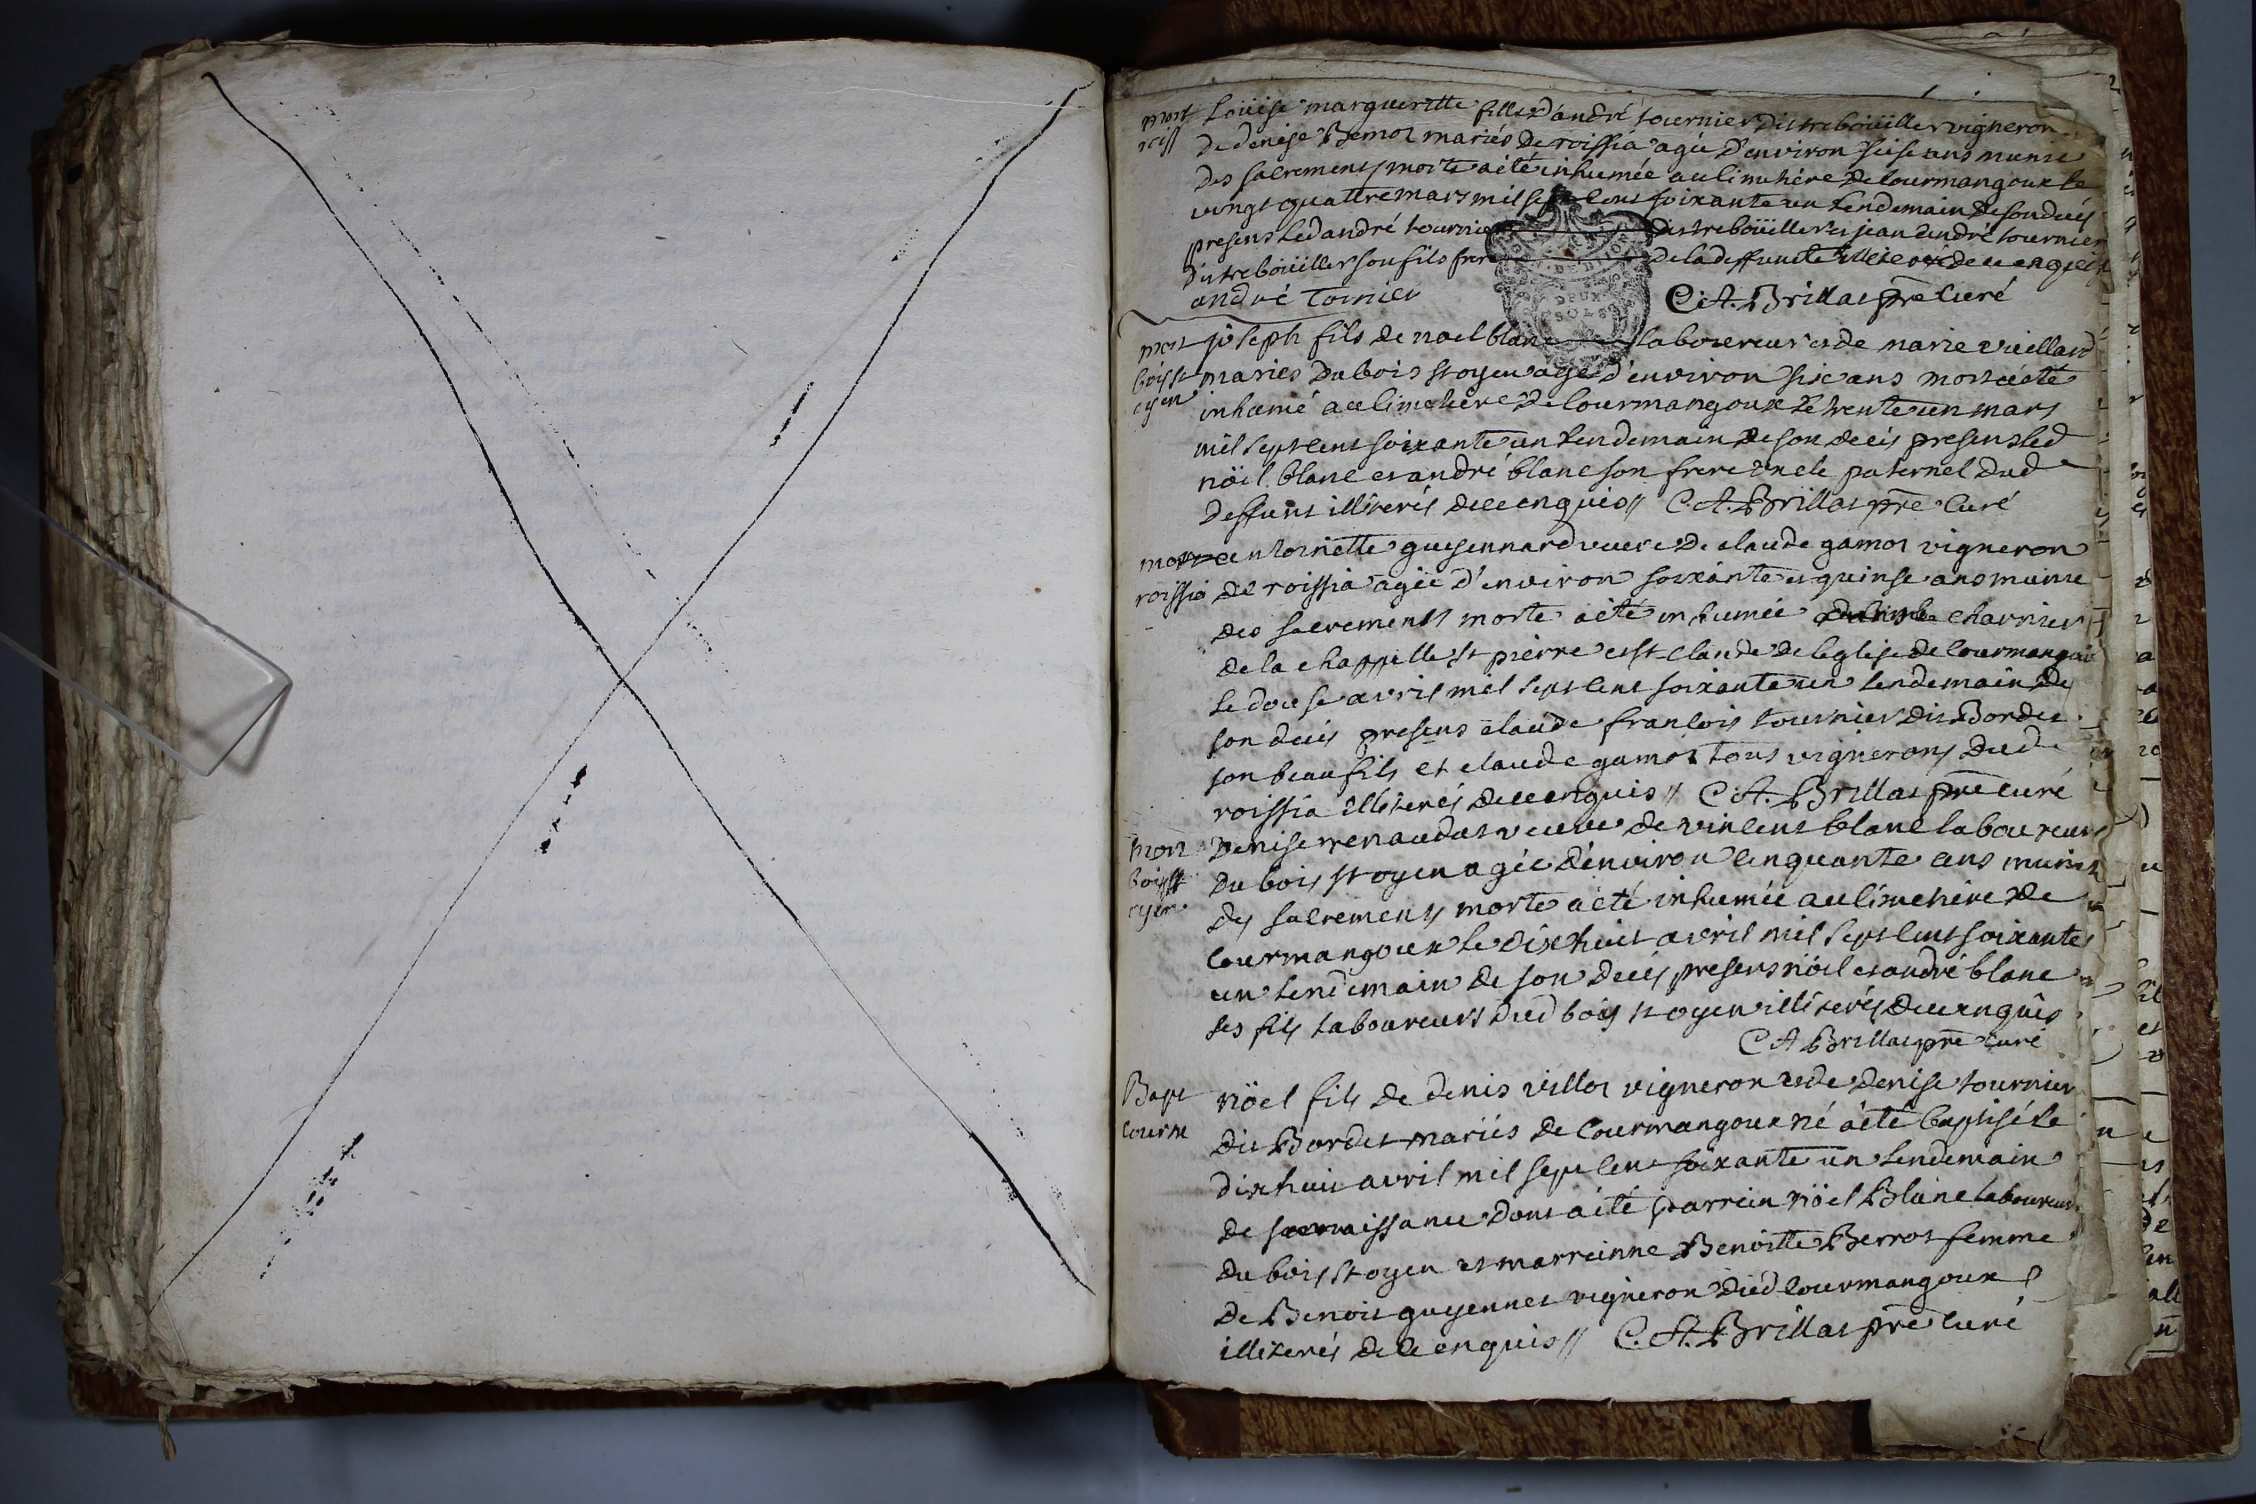 mort Loüise margueritte fille d'andré tournier dit treboüiller vigneron
roiss de denise Bernot mariés de roissia agée d'environ seise ans munie
des sacrements morte a été inhumée au cimetière de Courmangoux le
vingt quattre mars mil sept cent soixante un lendemain de son decés
presens led andré tournier dit trebouïller et jean andré tournier
dit trebouïller son fils frere de la deffuncte illiteré de ce enquis
andré Tornier C. A. Brillat prê Curé
mort joseph fils de noel blanc laboureur et de marie vieillard
bois st mariés du bois st oyen agé d'environ six ans mort a été
oyen inhumé au cimetière de Courmangoux le trente un mars
mil sept cent soixante un lendemain de son decés presens led
nöel blanc et andré blanc son frere oncle paternel dud
deffunt illiterés de ce enquis // C. A. Brillat prê Curé
mort antoinette guyennard veuve de claude gamot vigneron
roissia de roissia agée d'environ soixante et quinse ans munie
des sacrements morte a été inhumée charnier
de la chappelle st pierre et st Claude de leglise de Courmangoux
le douse avril mil sept cent soixante un lendemain de
son decés presens claude francois tournier dit Bordet
son beau fils et claude gamot tous vignerons dud
roissia illiterés de ce enquis // C. A. Brillat prê Curé
mort Denise renaudat veuve de vincent blanc laboureur
bois st du bois st oyen agée d'environ cinquante ans munie
oyen des sacrements morte a été inhumée au cimetière de
Courmangoux le dix huit avril mil sept cent soixante
un lendemain de son decés presens nöel et andré blanc
ses fils laboureurs dud bois st oyen illiterés de ce enquis
C A Brillat prê Curé
Bapt nöel fils de denis villot vigneron et de denise tournier
Courm dit Bordet mariés de Courmangoux né a été baptisé le
dix huit avril mil sept cent soixante un lendemain
de sa naissance dont a été parrein nöel Blanc laboureur
du bois st oyen et marreinne Benoitte Berrot femme
de Benoit guyennet vigneron dud Courmangoux
illiterés de ce enquis // C. A. Brillat prê Curé